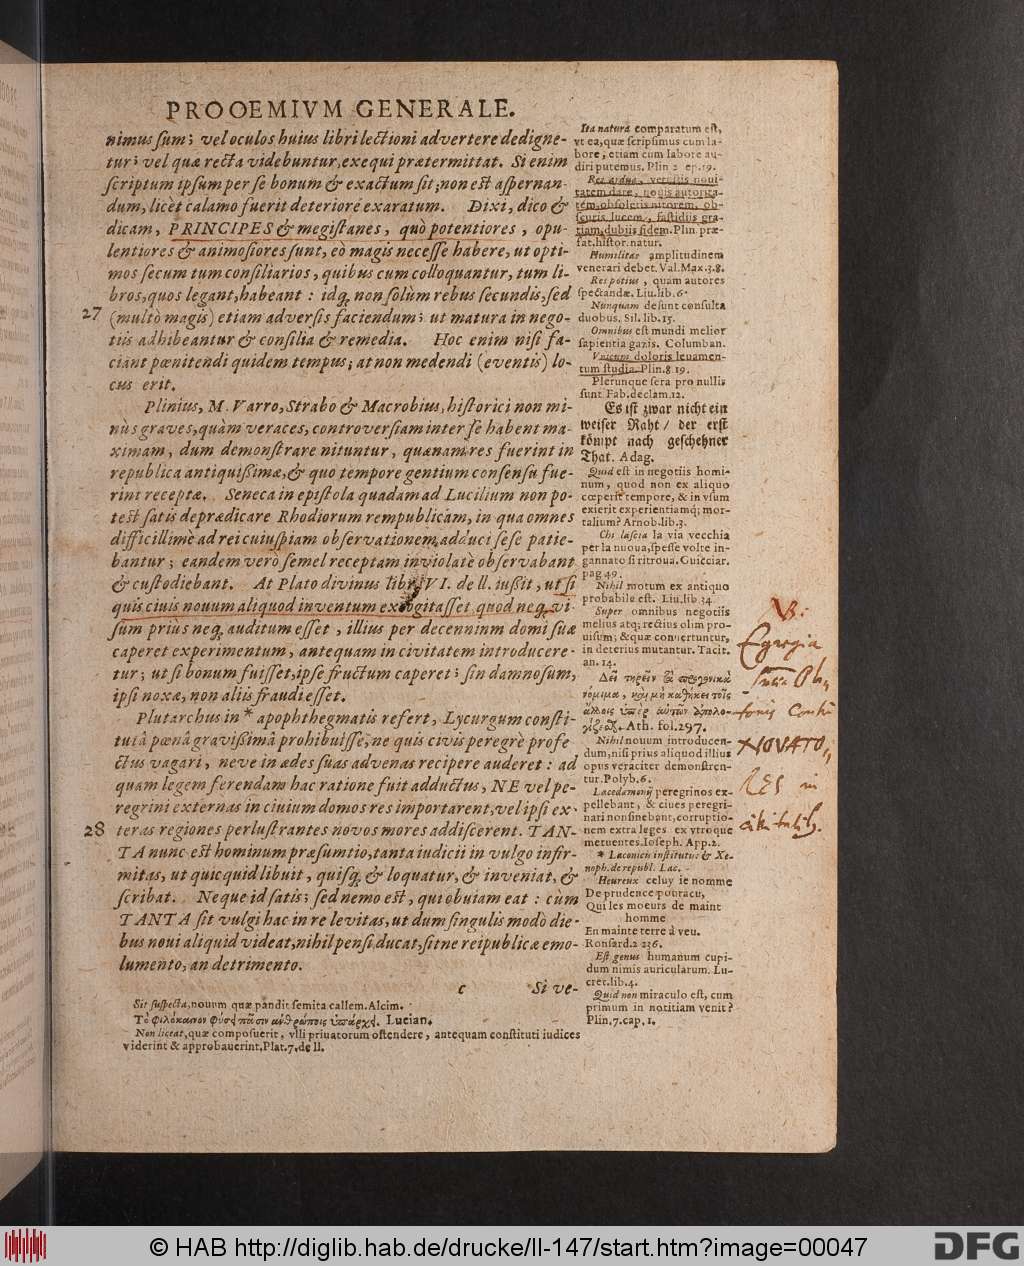 PROOEMIVM GENERALE.
nimus sum; vel oculos huius libri lectioni advertere dedigne-
tur; vel quæ recta videbuntur, exequi prætermittat. Si enim
scriptum ipsum per se bonum & exactum sit; non est aspernan-
dum, licèt calamo fuerit deteriorè exaratum. Dixi, dico &
dicam, PRINCIPES & megistanes, quò potentiores, opu-
lentiores & animosiores sunt, eò magis necesse habere, ut opti-
mos secum tum consiliarios, quibus cum colloquantur, tum li-
bros, quos legant, habeant: idq́; non solùm rebus secundis, sed
27 (multò magis) etiam adversis faciendum; ut matura in nego-
tiis adhibeantur & consilia & remedia. Hoc enim nisi fa-
ciant pœnitendi quidem tempus; at non medendi (eventis) lo-
cus erit.
Plinius, M. Varro, Strabo & Macrobius, historici non mi-
nùs graves, quàm veraces, controversiam inter se habent ma-
ximam, dum demonstrare nituntur, quænam res fuerint in
republica antiquißimæ, & quo tempore gentium consensu fue-
rint receptæ. Seneca in epistola quadam ad Lucilium non po-
test satis deprædicare Rhodiorum rempublicam, in qua omnes
difficillimè ad rei cuiuspiam observationem adduci sese patie-
bantur; eandem verò semel receptam inviolatè observabant
& custodiebant. At Plato divinus libr. VI. de ll. iußit, ut si
quis civis novum aliquod inventum excogitasset, quod neq; vi-
sum priùs neq; auditum esset, illius per decenninm domi suæ
caperet experimentum, antequam in civitatem introducere-
tur; ut si bonum fuisset, ipse fructum caperet; sin damnosum,
ipsi noxæ, non aliis fraudi esset.
Plutarchus in * apophthegmatis refert, Lycurgum consti-
tutâ pœnâ gravißimâ prohibuisse, ne quis civis peregrè profe-
ctus vagari, neve in ædes suas advenas recipere auderet: ad
quam legem ferendam hac ratione fuit adductus, NE vel pe-
regrini externas in civium domos res importarent, vel ipsi ex-
28 teras regiones perlustrantes novos mores addiscerent. TAN-
TA nunc est hominum præsumtio, tanta iudicii in vulgo infir-
mitas, ut quicquid libuit, quisq; & loquatur, & inveniat, &
scribat. Neque id satis; sed nemo est, qui obviam eat: cùm
TANTA sit vulgi hac in re levitas, ut dum singulis modò die-
bus novi aliquid videat, nihil pensi ducat, sitne reipublicæ emo-
lumento, an detrimento.
c Si ve-
Sit suspecta, nouum quæ pandit semita callem. Alcim.
Τὸ φιλόκαινον φύσει πᾶσιν ἀνθρώποις ὑπάρχει. Lucian.
Non liceat, quæ composuerit, vlli priuatorum ostendere, antequam constituti iudices
viderint & approbauerint. Plat. 7. de ll.
Ita naturâ comparatum est,
vt ea, quæ scripsimus cum la-
bore, etiam cum labore au-
diri putemus. Plin 2. ep. 19.
Res ardua, vetustis noui-
tatem dare, nouis autorga-
tem, obsoletis nitorem, ob-
scuris lucem, fastidiis gra-
tiam, dubiis fidem. Plin. præ-
fat. histor. natur.
Humilitas amplitudinem
venerari debet. Val. Max. 3. 8.
Res potius, quam autores
spectandæ. Liu. lib. 6.
Nunquam desunt consulta
duobus. Sil. lib. 15.
Omnibus est mundi melior
sapientia gazis. Columban.
Vnicum doloris leuamen-
tum studia. Plin. 8 19.
Plerunque sera pro nullis
sunt Fab. declam. 12.
Es ist zwar nicht ein
weiser Raht / der erst
kömpt nach geschehner
That. Adag.
Quid est in negotiis homi-
num, quod non ex aliquo
cœperit tempore, & in vsum
exierit experientiamq; mor-
talium? Arnob. lib. 3.
Chi lascia la via vecchia
per la nuoua, spesse volte in-
gannato si ritroua. Guicciar.
pag 49.
Nihil motum ex antiquo
probabile est. Liu. lib. 34
Super omnibus negotiis
melius atq; rectius olim pro-
uisum; & quæ conuertuntur,
in deterius mutantur. Tacit.
an. 14.
Δεῖ τηρεῖν τὰ πατρῳνικὰ
νόμιμα, καὶ μὴ καθήκει τοῖς
ἄλλοις ὑπὲρ αὐτῶν ἀπολο-
γίζεσθαι. Ath. fol. 297.
Nihil nouum introducen-
dum, nisi prius aliquod illius
opus veraciter demonstren-
tur. Polyb. 6.
Lacedæmonij peregrinos ex-
pellebant, & ciues peregri-
nari non sinebant, corruptio-
nem extra leges ex vtroque
metuentes. Ioseph. App. 2.
* Laconicis institutis & Xe-
noph. de republ. Lac.
Heureux celuy ie nomme
De prudence pourveu,
Qui les moeurs de maint
homme
En mainte terre à veu.
Ronsard. 2 236.
Est genus humanum cupi-
dum nimis auricularum. Lu-
cret. lib. 4.
Quid non miraculo est, cum
primum in notitiam venit?
Plin. 7. cap. 1.
NB:
Egregia
Pla-
tonis contra
NOVATO-
RES in
© HAB http://diglib.hab.de/drucke/ll-147/start.htm?image=00047
DFG